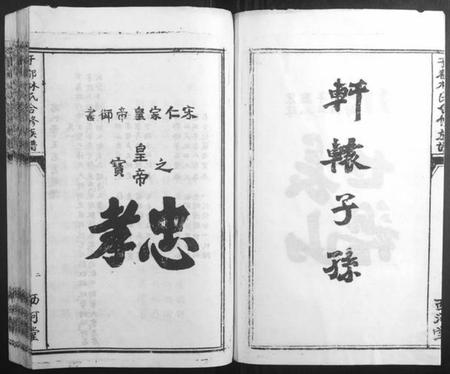 軒轅子孫
宋仁宗皇帝御書
皇帝
之
寶
忠孝
西河堂
二
西河堂